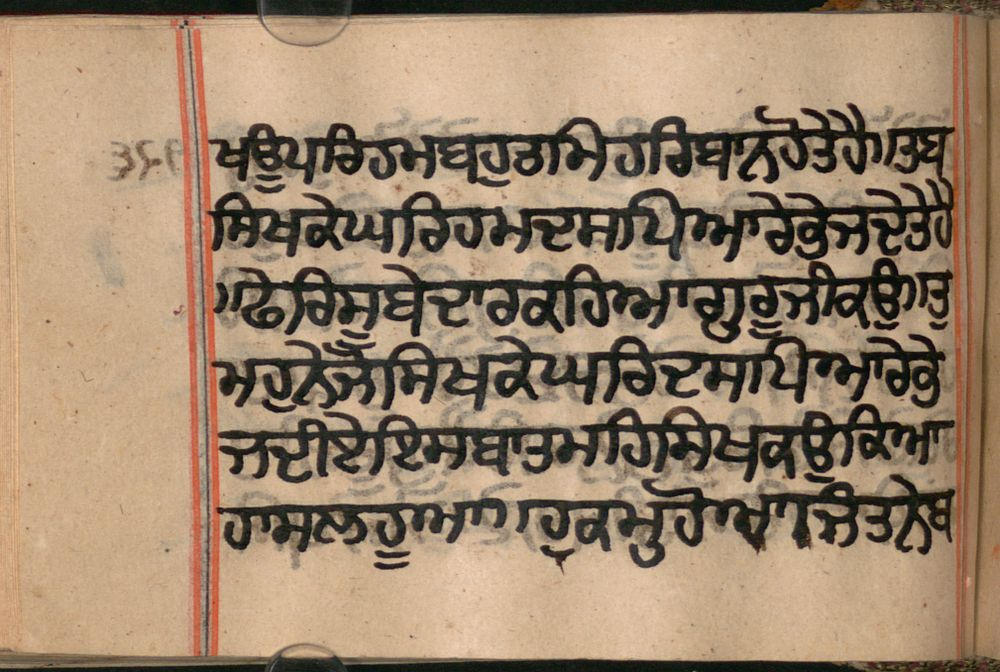 ਖਊਪਰਿਹਮਬਹੁਤਮਿਹਰਿਬਾਨਹੋਤੇਹੈ॥ਤਬ
ਸਿਖਕੇਘਰਿਹਮਦਸਪਿਆਰੇਭੇਜਦੇਤੇਹੈ
॥ਫੇਰਿਸੂਬੇਦਾਰਕਹਿਆਗੁਰੂਜੀਕਉ॥ਤੁ
ਮਹੁਨੇਜੋਸਿਖਕੇਘਰਿਦਸਪਿਆਰੇਭੇ
ਜਦੀਏਇਸਬਾਤਮਹਿਸਿਖਕਉਕਿਆ
ਹਾਸਲਹੂਆ॥ਹੁਕਮੁਹੋਆ॥ਜੰਤਨੇਬ